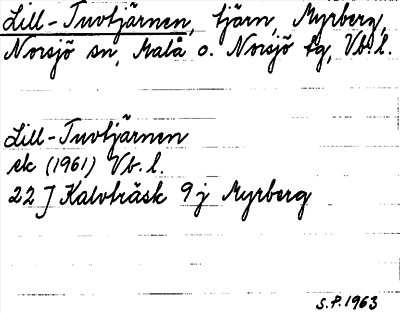 Lill-Tuvtjärnen, tjärn, Myrberg,
Norsjö sn, Malå o. Norsjö tg, Vb. l.
Lill-Tuvtjärnen
ek (1961) Vb. l.
22 J Kalvträsk 9 j Myrberg
S.P. 1963